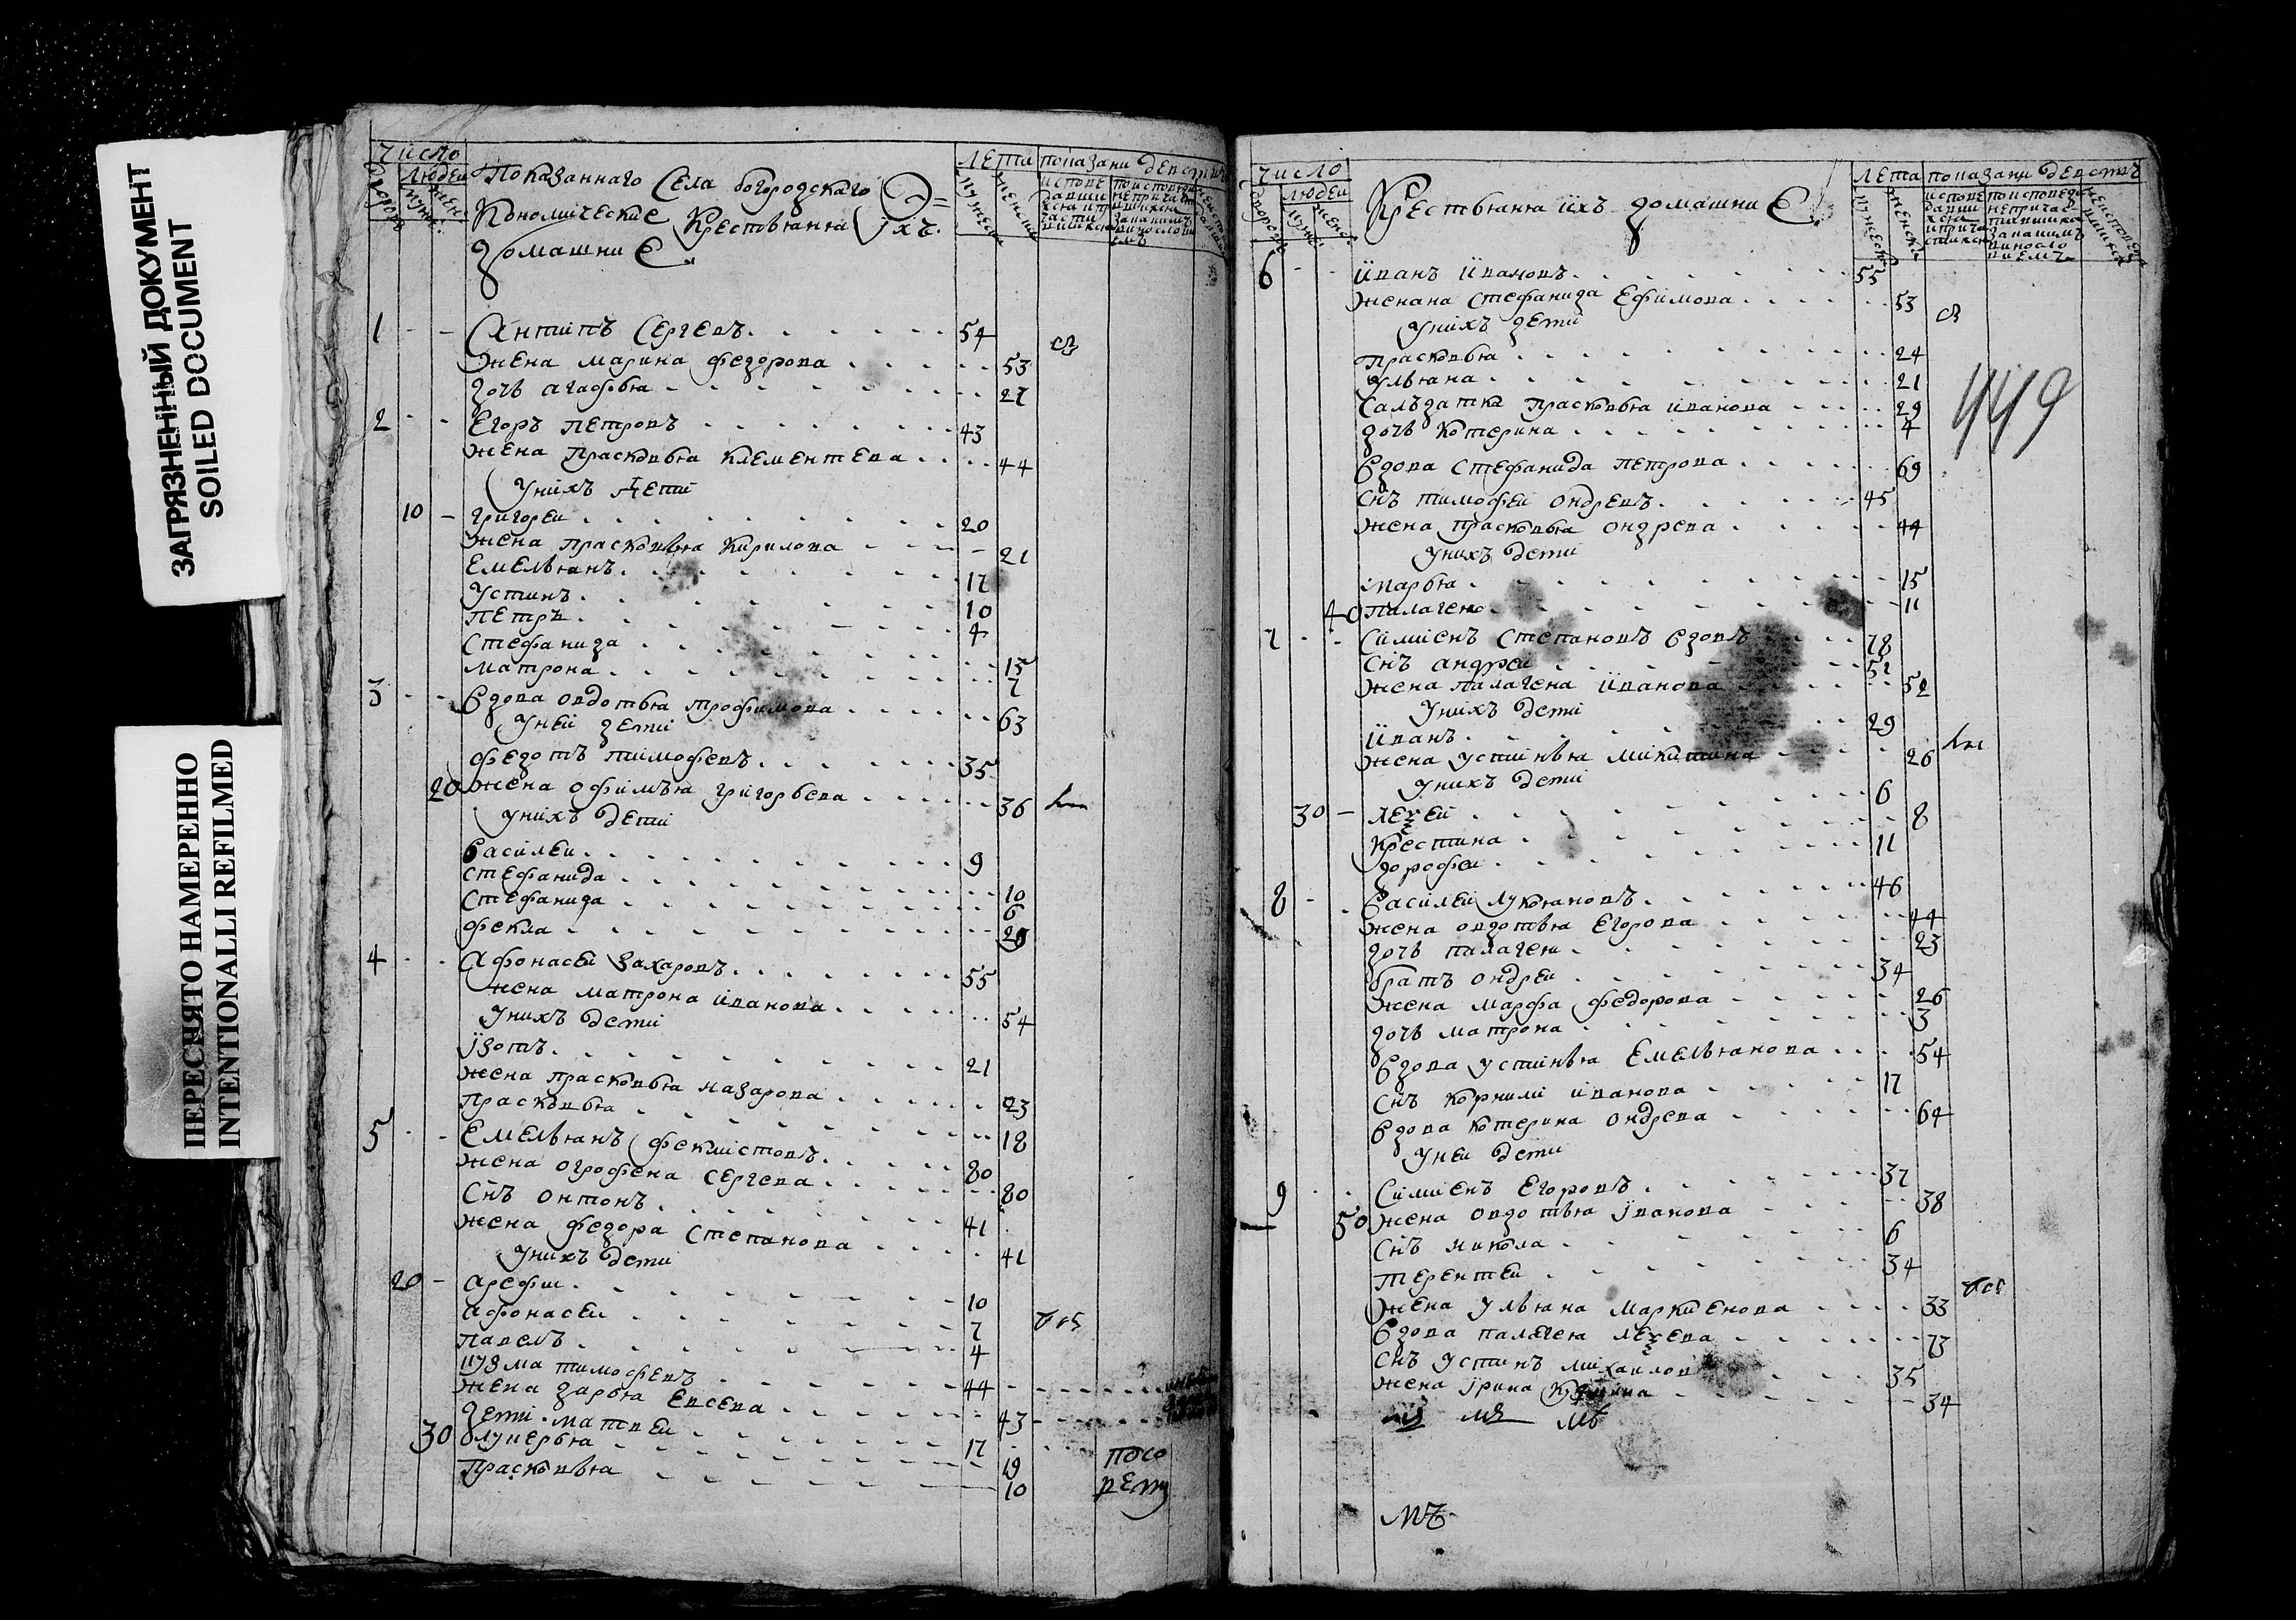 ЗАГРЯЗНЕННЫЙ ДОКУМЕНТ
SOILED DOCUMENT
ПЕРЕСНЯТО НАМЕРЕННО
INTENTIONALLI REFILMED
число
людеи
Показаннаго Села богородскаго Э=
кономические Крестьяня ихъ
домашниЕ
лета показани Действъ
1 Антипъ Сергевъ 54
жена марина федорова 53
дочь агафья 27
2 Егоръ петровъ 43
жена прасковья клементева 44
уних дети
10 григореи 20
жена прасковья кирилова 21
Емельянъ 17
устинъ 10
петръ 4
стефанида 15
матрона 7
3 вдова овдотья трофимова 63
унеи дети
федотъ тимофевъ 35
20 жена офимья григорьева 36
унихъ дети
василеи 9
стефанида 10
стефанида 6
фекла 29
4 Афонасеи Захаровъ 55
жена матрона иванова 54
унихъ дети
изотъ 21
жена прасковья назарова 23
прасковья 18
5 Емельянъ феклистовъ 80
жена огрофена сергева 80
снъ онтонъ 41
жена федора степанова 41
унихъ дети
20 арефии 10
афонасеи 7
павелъ 4
кузма тимофевъ 44
жена дарья Евсева 43
дети матвеи 17
30 лукерья 19
прасковья 10
число
людеи
Крестьяня ихъ домашниЕ
лета показани действъ
6 иванъ ивановъ 55
жена на стефанида ефимова 53
унихъ дети
прасковья 24
ульяна 21
салъдатка прасковья иванова 29
дочь котерина 4
449
вдова стефанида петрова 69
снъ тимофеи ондревъ 45
жена прасковья ондрева 44
унихъ дети
марья 15
40 палагея 11
7 Симиенъ степановъ вдовъ 78
снъ андреи 52
жена палагея иванова 52
унихъ дети
иванъ 29
жена устинья микитина 26
унихъ дети
30 леѯеи 6
крестина 8
дорофеи 11
8 василеи лукьяновъ 46
жена овдотья Егорова 44
дочь палагея 23
братъ ондреи 34
жена марфа федорова 26
дочь матрона 3
вдова устинья Емельянова 54
снъ корнили иванова 17
вдова котерина ондрева 64
унеи дети
9 Симиенъ Егоровъ 37
50 жена овдотья иванова 38
снъ никола 6
терентеи 34
жена ульяна маркиенова 33
вдова палагея леѯева 73
снъ устинъ михаилов 35
жена ирина 34